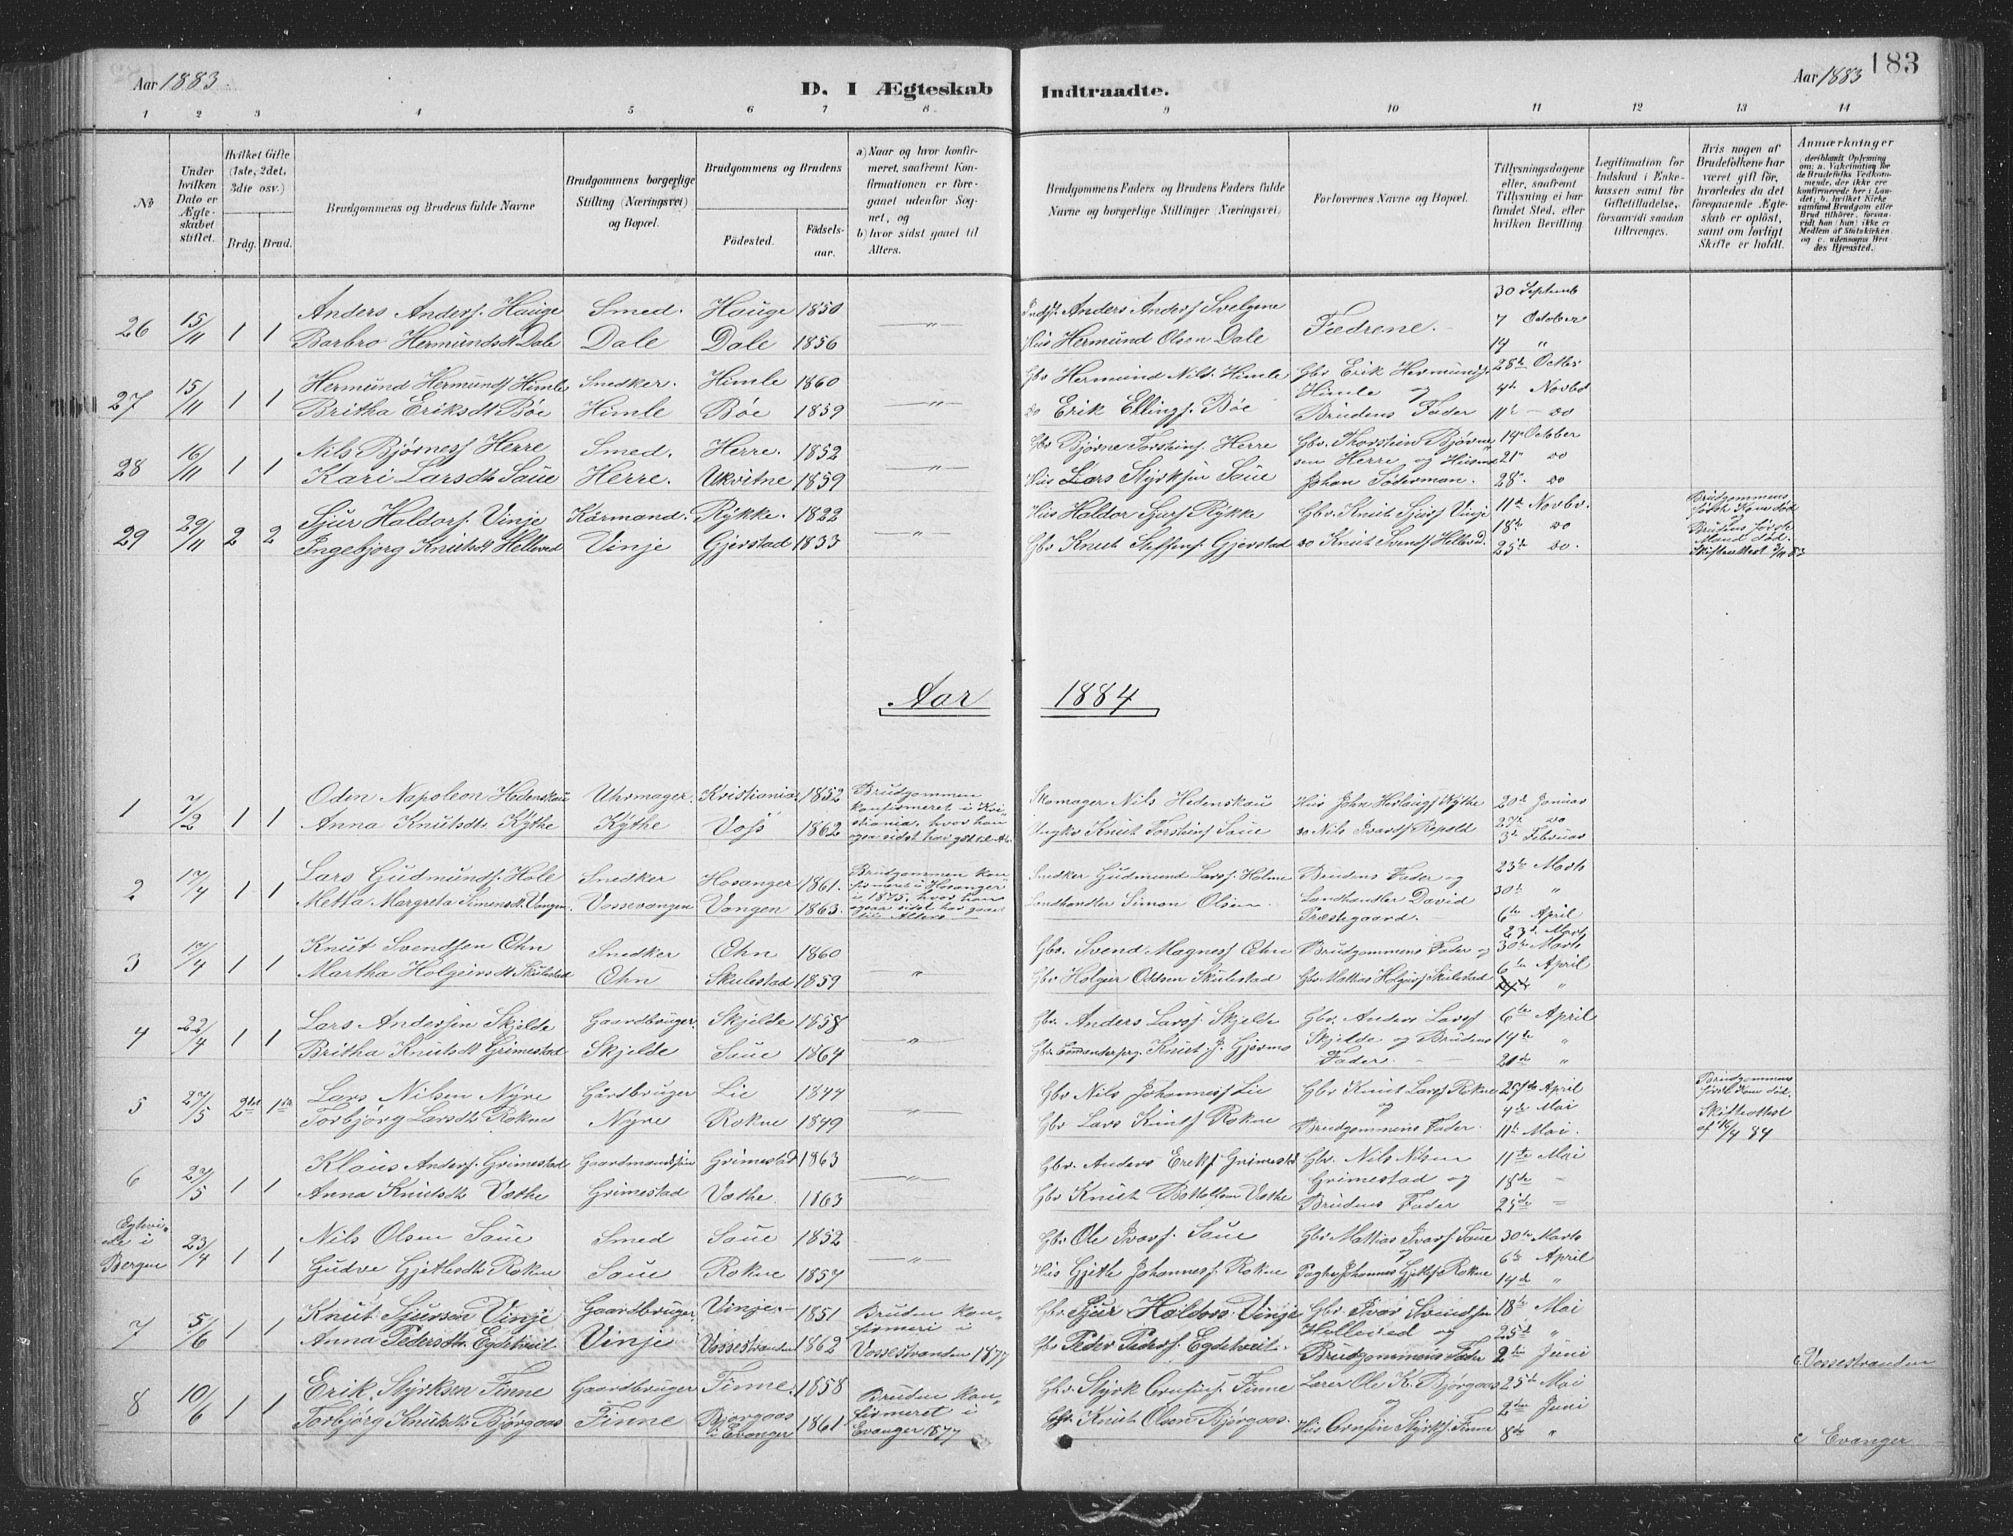 Aar 1883.
D. I Ægteskab Indtraadte.
Aar 1883 183
1 2 3 4 5 6 7 8 9 10 11 12 13 14
No
Under hvilken Dato er Ægteskabet stiftet.
Hvilket Gifte (1ste, 2det, 3die osv.)
Brdg. Brud.
Brudgommens og Brudens fulde Navne
Brudgommens borgerlige Stilling (Næringsvei) og Bopæl.
Brudgommens og Brudens
Födested.
Födselsaar.
a) Naar og hvor konfirmeret, saafremt Konfirmationen er foregaaet udenfor Sognet, og
b) hvor sidst gaaet til Alters.
Brudgommens Faders og Brudens Faders fulde Navne og borgerlige Stillinger (Næringsvei)
Forlovernes Navne og Bopæl.
Tillysningsdagene eller, saafremt Tillysning ei har fundet Sted, efter hvilken Bevilling.
Legitimation for Indskud i Enkekassen samt for Giftetilladelse, forsaavidt saadan tiltrænges.
Hvis nogen af Brudefolkene har været gift før, hvorledes da det foregaaende Ægteskab er opløst, samt om lovligt Skifte er holdt.
Anmærkninger
26 15/11 1 1 Anders Anders. Hauge Smed. Hauge 1850 — " — Inds. Anders Anders Svelgene Fædrene. 30 Septemb
Barbro Hermundsdt Dale Dale Dale 1856 Hus Hermund Olsen Dale 7 October
14 "
27 15/11 1 1 Hermund Hermunds Himle Snedker. Himle 1860 — " — Gbr Hermund Nils. Himle Gbr Erik Hermunds 28de Octbr
Himle og 4de Novbr
Britha Eriksdt Böe Himle Böe 1859 do Erik Ellings. Böe Brudens Fader 11te — do
28 16/11 1 1 Nils Bjørnes. Herre Smed. Herre. 1852 — " — Gbr Bjørne Torstens. Herre Gbr. Thorstein Bjørne 14de October
sen Herre og Husmd 21de do
Kari Larsdt Saue Herre. Ukvitne 1859 Hus Lars Styrksen Saue Johan Söderman. 28de do
29 29/11 2 2 Sjur Haldors. Vinje Kårmand. Rykke. 1822 — " — Hus Haldor Sjurs Rykke Gbr. Knut Sjurs Vinje 11te Novbr. Brudgommens første Kone død og
18de do Brudens første Mand død.
Ingebjørg Knutsdt Helleved Vinje Gjerstad 1833 Gbr Knut Steffens. Gjerstad do Knut Svends Helleved. 25de do. Skifteattest 3/11 83
Aar 1884
1 7/2 1 1 Oden Napoleon Hedenskau Uhrmager. Kristiania 1852 Brudgommen konfirmeret i Kristiania, hvor han ogsaa sidst har gaaet til Al. Skomager Nils Hedenskau Hus John Herlaugs Kythe 20de Januar
27de do
Anna Knutsdt. Kythe Kythe Voss 1862 Ungkr Knut Torstens Saue do Nils Ivars Repold 3de Februar
2 17/4 1 1 Lars Gudmunds. Hole Snedker Hosanger 1861. Brudgommen konfirmeret i Hosanger i 1875, hvor han ogsaa sidst har gaaet til Alters Snedker Gudmund Lars. Holme Brudens Fader og 23de Marts
Landhandler David 30te "
Metta Margreta Simensdt. Vangen. Vossevangen Vangen 1863. Landhandler Simon Olsen Præstegaard. 6te April
3 17/4 1 1 Knut Svendsen Ohn Snedker Ohn 1860 " Gbr. Svend Magnes Ohn Brudgommens Fader og 23de Marts
30te Marts
Martha Holgeirsdt Skulestad Ohn Skulestad 1859 Gbr Holger Oddsen Skulestad Gbr. Mathias Holgers Skulestad 6te April
"
4 22/4 1 1 Lars Andersen Skjelde Gaardbruger. Skjelde 1858 — " — Gbr. Anders Lars. Skjelde Gbr. Anders Lars 6te April
Skjelde og Brudens 14de "
Britha Knutsdt Grimestad Skjelde Saue 1864 Gbr. Knut J. Gjerme Fader. — — 20de "
5 27/5 2det 1ste Lars Nilsen Nyre Gårdbruger Lie 1844 " Gbr Nils Johannes Lie Gbr Knut Lars Rokne 25de April Brudgommens første Kone død.
og 4de Mai Skifteattest
Torbjørg Larsdt Rokne Nyre Rokne 1849 Gbr Lars Knuts Rokne Brudgommens Fader. 11te Mai. af 16/4 84
6 27/5 1 1 Klaus Anders. Grimestad Gaardmandssøn Grimestad 1863 — " — Gbr. Anders Eriks Grimestad Gbr. Nils Nilsen 11te Mai
Grimestad og 18de "
Anna Knutsdt Væthe Grimestad Væthe 1863 Gbr Knut Bottolsen Væthe Brudens Fader 25de "
Egtevi-
ede i
Bergen 23/4 1 1 Nils Olsen Saue Smed Saue 1852 — " — Gbr Ole Ivars. Saue Gbr Mathias Ivars Saue 30te Marts
og 6te April
Gudve Gjetlesdt. Rokne Saue Rokne 1857 Hus Gjetle Johannes. Rokne Johannes Gjetles Rokne 14de "
7 5/6 1 1 Knut Sjursen Vinje Gaardbruger. Vinje. 1851 Bruden konfirmeri i Vossestranden 1877 Gbr Sjur Haldors. Vinje Gbr. Ivar Svendsen 18de Mai
Helleved og 25de "
Anna Pedersdt. Egdetveit Vinje Vossestranden 1862 Gbr Peder Peders. Egdetveit. Brudgommens Fader 2den Juni c, Vossestranden
8 10/6 1 1 Erik Styrksen Finne Gaardbruger Finne. 1858 Bruden konfirmeret i Evanger 1877 Gbr. Styrk Ornfins. Finne Lærer Ole K. Bjørgaas 25de Mai
og 2den Juni
Torbjörg Knutsdt. Bjørgaas Finne Bjørgaas i Evanger 1861 Gbr Knut Olsen Bjørgaas. Hus Ornfin Styrks. Finne 8de " c Evanger